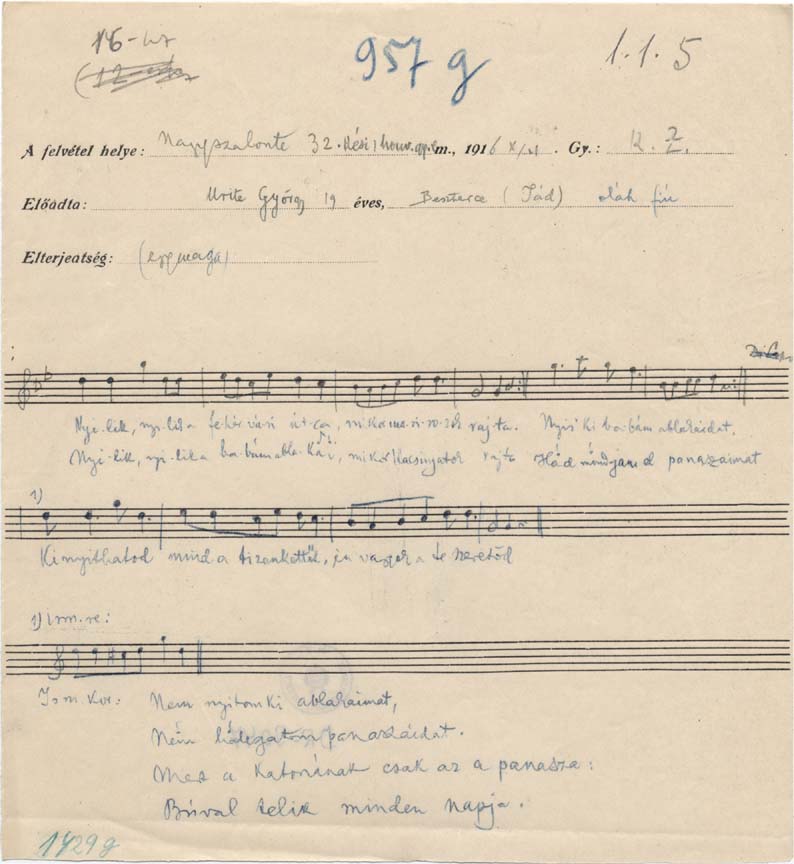 16-
957 g
1.1.5
A felvétel helye: Nagyszalonta 32. m., 1916 XI/ Gy.: K. Z.
Előadta: Urite György 19 éves, Beszterce (Jád) oláh fiú
Elterjeatség: (egymaga)
Nyi-lik, nyi-lik a fe-hér vá-ri ut-ca, mikor ma-si-ro-zok rajta. Nyisd ki ba-bám ablakaidat,
Nyi-lik, nyi-lik a ba-bám abla-ka, mikor kacsingatok rajta Hadd mondjam el panaszaimat
1)
Kinyithatod mind a tizenkettőt, én vagyok a te szeretőd
1) Ism.-re:
Ism. kor: Nem nyitom ki ablakaimat,
Nem hallgatom panaszaidat.
Mer a katonának csak az a panasza:
Búval telik minden napja.
1429 g